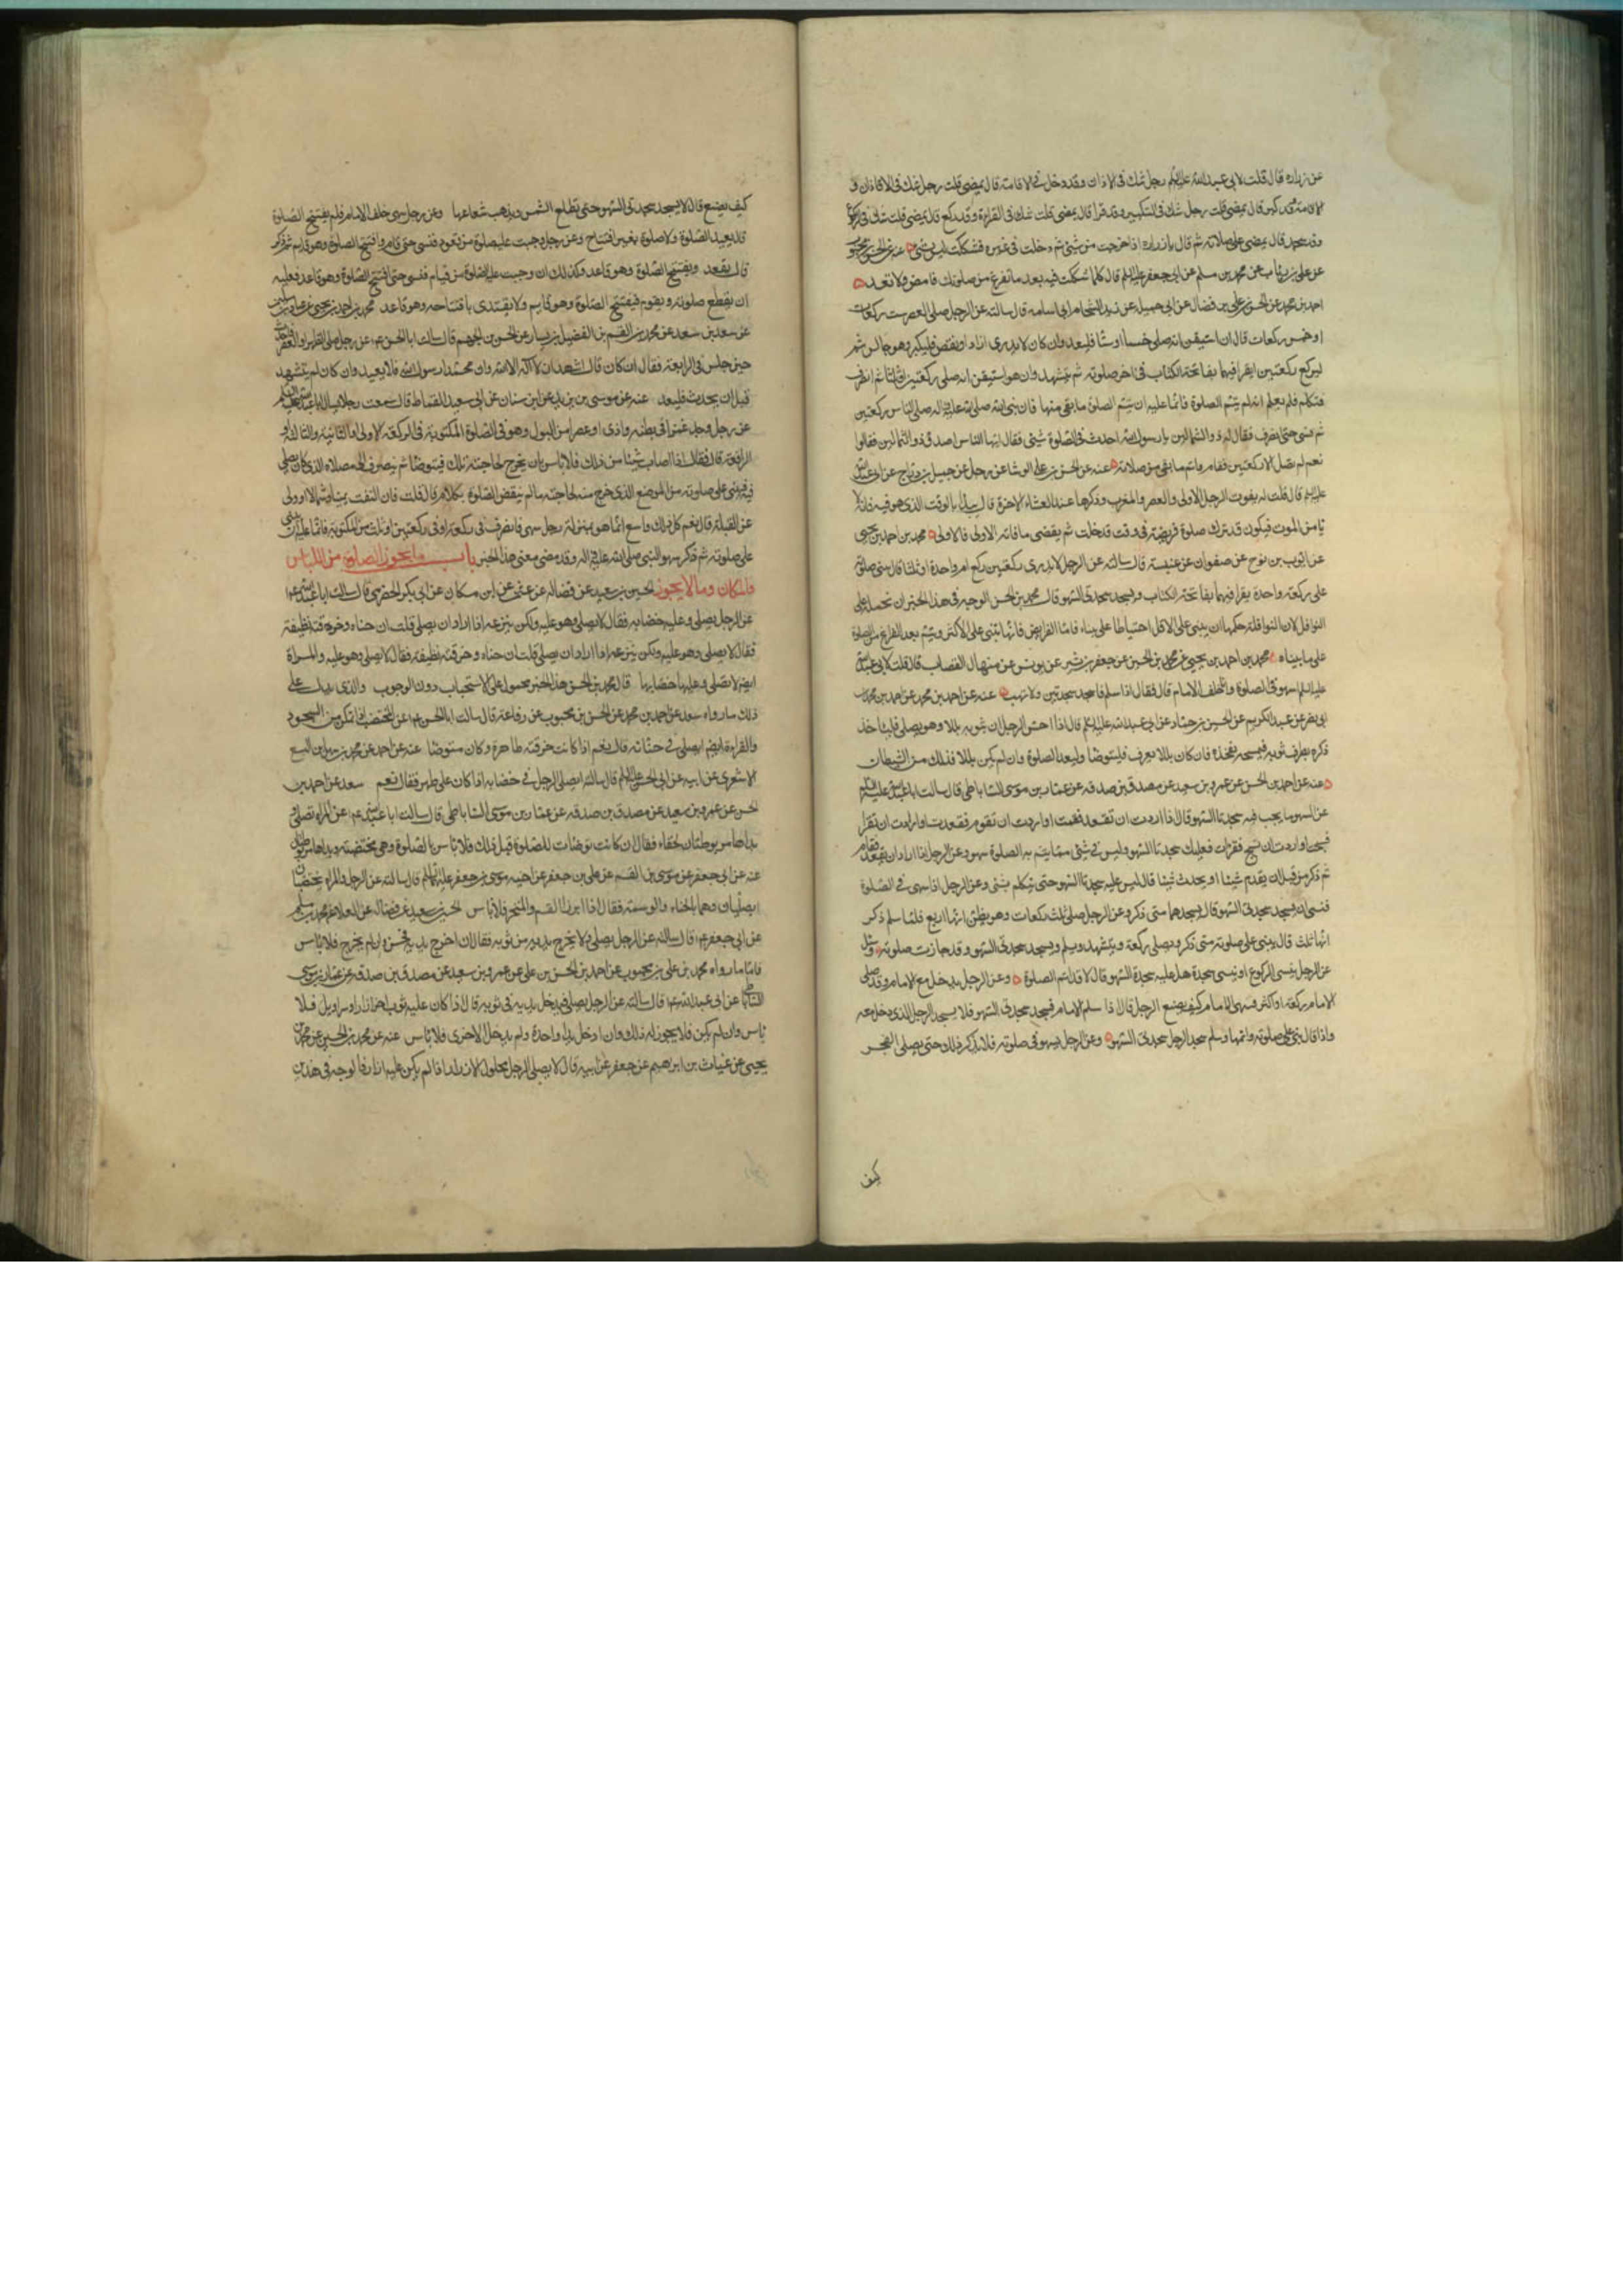 عن زراره قال قلت لابى عبد الله عليه السلم رجل شك فى الاذان وقد دخل فى الاقامة قال يمضى قلت رجل شك فى الاذان و
الاقامة وقد كبر قال يمضى قلت رجل شك فى التكبير وقد قرا قال يمضى قلت شك فى القراءة وقد ركع قال يمضى قلت شك فى الركوع
وقد سجد قال يمضى على صلاته ثم قال يا زراره اذا خرجت من شئ ثم دخلت فى غيره فشككت ليس بشئ عنه عن الحسن بن محبوب
عن على بن رئاب عن محمد بن مسلم عن ابى جعفر عليه السلم قال كلما شككت فيه بعد ما تفرغ من صلوتك فامض ولا تعد
احمد بن محمد عن الحسن بن على بن فضال عن ابى جميله عن زيد الشحام ابى اسامه قال سالته عن الرجل صلى العصر ست ركعات
او خمس ركعات قال ان استيقن انه صلى خمسا او ستا فليعد وان كان لا يدرى ازاد او نقص فليكبر وهو جالس ثم
ليركع ركعتين يقرا فيهما بفاتحة الكتاب فى اخر صلوته ثم يتشهد وان هو استيقن انه صلى ركعتين او ثلثا ثم انصرف
فتكلم فلم يعلم انه لم يتم الصلوة فانما عليه ان يتم الصلوة ما بقى منها فان نبى الله صلى الله عليه واله صلى بالناس ركعتين
ثم نسى حتى انصرف فقال له ذو الشمالين يا رسول الله احدث فى الصلوة شئ فقال ايها الناس اصدق ذو الشمالين فقالوا
نعم لم تصل الا ركعتين فقام فاتم ما بقى من صلاته عنه عن الحسن بن على الوشا عن رجل عن جميل بن دراج عن ابى عبد الله
عليه السلم قال قلت له يفوت الرجل الاولى والعصر والمغرب وذكرها عند العشاء الاخرة قال يبدأ بالوقت الذى هو فيه فانه لا
يا من الموت فيكون قد ترك صلوة فريضة فى وقت قد دخلت ثم يقضى ما فاته الاولى فالاولى محمد بن احمد بن يحيى
عن ايوب بن نوح عن صفوان عن عنبسة قال سالته عن الرجل لا يدرى ركعتين ركع ام واحدة او ثلثا قال يبنى صلوته
على ركعة واحدة يقرا فيها بفاتحة الكتاب ويسجد سجدتى السهو قال محمد بن الحسن الوجه فى هذا الخبر ان نحمله على
النوافل لان النوافلة حكمها ان يبنى على الاقل احتياطا على بناء فاما الفرايض فانها تبنى على الاكثر ويتمم بعد الفراغ من الصلوة
على ما بيناه محمد بن احمد بن يحيى عن محمد بن الحسين عن جعفر بن بشير عن يونس عن منهال القصاب قال قلت لابى عبد الله
عليه السلم اسهو فى الصلوة وانا خلف الامام قال فقال اذا سلم فاسجد سجدتين ولا تهب عنه عن احمد بن محمد عن احمد بن محمد بن
ابى نصر عن عبد الكريم عن الحسين بن حماد عن ابى عبد الله عليه السلم قال اذا احس الرجل ان بثوبه بللا وهو يصلى فلياخذ
ذكره بطرف ثوبه فيمسحه بفخذه فان كان بللا يعرف فليتوضا وليعد الصلوة وان لم يكن بللا فذلك من الشيطان
عنه عن احمد بن الحسن عن عمرو بن سعيد عن مصدق بن صدقه عن عمار بن موسى الساباطى قال سالت ابا عبد الله عليه السلم
عن السهو ما يجب فيه سجدتا السهو قال اذا اردت ان تقعد فقمت او اردت ان تقوم فقعدت او اردت ان تقرا
فسبحت او اردت ان تسبح فقرات فعليك سجدتا السهو وليس فى شئ مما يتم به الصلوة سهو وعن الرجل اذا اراد ان يقعد فقام
ثم ذكر من قبل ان يقدم شيئا او يحدث شيئا قال ليس عليه سجدتا السهو حتى يتكلم بشئ وعن الرجل اذا سهى فى الصلوة
فنسى ان يسجد سجدتى السهو قال يسجدهما متى ذكر وعن الرجل صلى ثلث ركعات وهو يظن انها اربع فلما سلم ذكر
انها ثلث قال يبنى على صلوته متى ذكر ويصلى ركعة ويتشهد ويسلم ويسجد سجدتى السهو وقد جازت صلوته وسئل
عن الرجل ينسى الركوع او ينسى سجدة هل عليه سجدة السهو قال لا قد اتم الصلوة وعن الرجل يدخل مع الامام وقد صلى
الامام بركعة او اكثر فسهى الامام كيف يصنع الرجل قال اذا سلم الامام فسجد سجدتى السهو فلا يسجد الرجل الذى دخل معه
واذا قام وبنى على صلوته واتمها وسلم سجد الرجل سجدتى السهو وعن الرجل يسهو فى صلوته فلا يذكر ذلك حتى يصلى الفجر
كيف
كيف يصنع قال لا يسجد سجدتى السهو حتى تطلع الشمس ويذهب شعاعها وعن رجل سهى خلف الامام فلم يفتتح الصلوة
قال يعيد الصلوة ولا صلوة بغير افتتاح وعن رجل وجبت عليه صلوة من قعود فنسى حتى قام وافتتح الصلوة وهو قايم ثم ذكر
قال يقعد ويفتتح الصلوة وهو قاعد وكذلك ان وجبت عليه الصلوة من قيام فنسى حتى افتتح الصلوة وهو قاعد فعليه
ان يقطع صلوته ويقوم فيفتتح الصلوة وهو قايم ولا يقتدى بافتتاحه وهو قاعد محمد بن احمد بن يحيى عن عباد بن سليمن
عن سعد بن سعد عن محمد بن القسم بن الفضيل بن يسار عن الحسن بن الجهم قال سالت ابا الحسن ع عن رجل صلى الظهر او العصر فاحدث
حين جلس فى الرابعة فقال ان كان قال اشهد ان لا اله الا الله وان محمدا رسول الله فلا يعيد وان كان لم يتشهد
قبل ان يحدث فليعد عنه عن موسى بن يزيد عن ابن سنان عن ابى سعيد القماط قال سمعت رجلا يسال ابا عبد الله عليه السلم
عن رجل وجد غمزا فى بطنه واذى او عصرا من البول وهو فى الصلوة المكتوبة فى الركعة الاولى او الثانية والثالثة او
الرابعة قال فقال اذا اصاب شيئا من ذلك فلا باس بان يخرج لحاجته تلك فيتوضا ثم ينصرف الى مصلاه الذى كان يصلى
فيه فيبنى على صلوته من الموضع الذى خرج منه لحاجته ما لم ينقض الصلوة بكلام قال قلت فان التفت يمينا وشمالا او ولى
عن القبلة قال نعم كل ذلك واسع انما هو بمنزلة رجل سهى فانصرف فى ركعة او فى ركعتين او ثلث من المكتوبة فانما عليه ان يبنى
على صلوته ثم ذكر سهو النبى صلى الله عليه واله وقد مضى معنى هذا الخبر باب ما يجوز الصلوة من اللباس
والمكان وما لا يجوز الحسين بن سعيد عن فضاله عن عثمن عن ابن مسكان عن ابى بكر الحضرمى قال سالت ابا عبد الله ع
عن الرجل يصلى وعليه خضابه فقال لا يصلى وهو عليه ولكن ينزعه اذا اراد ان يصلى قلت ان حناه وخرقته نظيفة
فقال لا يصلى وهو عليه ولكن ينزعه اذا اراد ان يصلى قلت ان حناه وخرقته نظيفة فقال لا يصلى وهو عليه والمراة
ايضا لا تصلى وعليها خضابها قال محمد بن الحسن هذا الخبر محمول على الاستحباب دون الوجوب والذى يدل على
ذلك ما رواه سعد عن احمد بن محمد عن الحسن بن محبوب عن رفاعة قال سالت ابا الحسن ع عن المختضب اذا تمكن من السجود
والقراءة ايضا ايصلى فى حنائه قال نعم اذا كانت خرقته طاهرة وكان متوضا عنه عن احمد عن محمد بن سهل بن اليسع
الاشعرى عن ابيه عن ابى الحسن عليه السلم قال سالته ايصلى الرجل فى خضابه اذا كان على طهر فقال نعم سعد عن احمد بن
الحسن عن عمرو بن سعيد عن مصدق بن صدقه عن عمار بن موسى الساباطى قال سالت ابا عبد الله ع عن المراة تصلى و
يداها مربوطتان بالحناء فقال ان كانت توضات للصلوة قبل ذلك فلا باس بالصلوة وهى مختضبة ويداها مربوطتان
عنه عن ابى جعفر عن موسى بن القسم عن على بن جعفر عن اخيه موسى بن جعفر عليهما السلم قال سالته عن الرجل والمراة يختضبان
ايصليان وهما بالحناء والوسمة فقال اذا ابرزا الفم والمنخر فلا باس الحسين بن سعيد عن فضاله عن العلاء عن محمد بن مسلم
عن ابى جعفر ع قال سالته عن الرجل يصلى ولا يخرج يديه من ثوبه فقال ان اخرج يديه فحسن وان لم يخرج فلا باس
فاما ما رواه محمد بن على بن محبوب عن احمد بن الحسن بن على عن عمرو بن سعيد عن مصدق بن صدقه عن عمار بن موسى
الساباطى عن ابى عبد الله ع قال سالته عن الرجل يصلى فيدخل يديه فى ثوبه قال اذا كان عليه ثوب اخر ازار او سراويل فلا
باس وان لم يكن فلا يجوز له ذلك وان ادخل يدا واحدة ولم يدخل الاخرى فلا باس عنه عن محمد بن الحسين عن محمد بن
يحيى عن غياث بن ابرهيم عن جعفر عن ابيه قال لا يصلى الرجل محلول الازرار اذا لم يكن عليه ازار فالوجه فى هذين